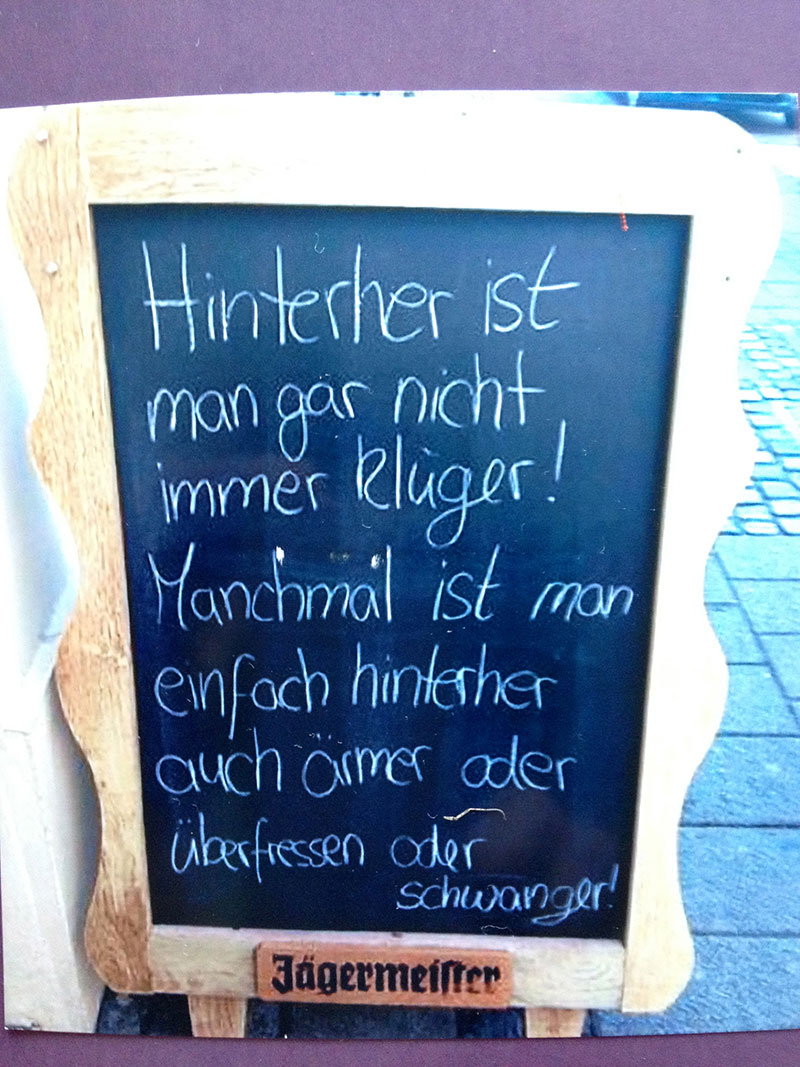 Hinterher ist
man gar nicht
immer klüger!
Manchmal ist man
einfach hinterher
auch ärmer oder
überfressen oder
schwanger!
Jägermeister